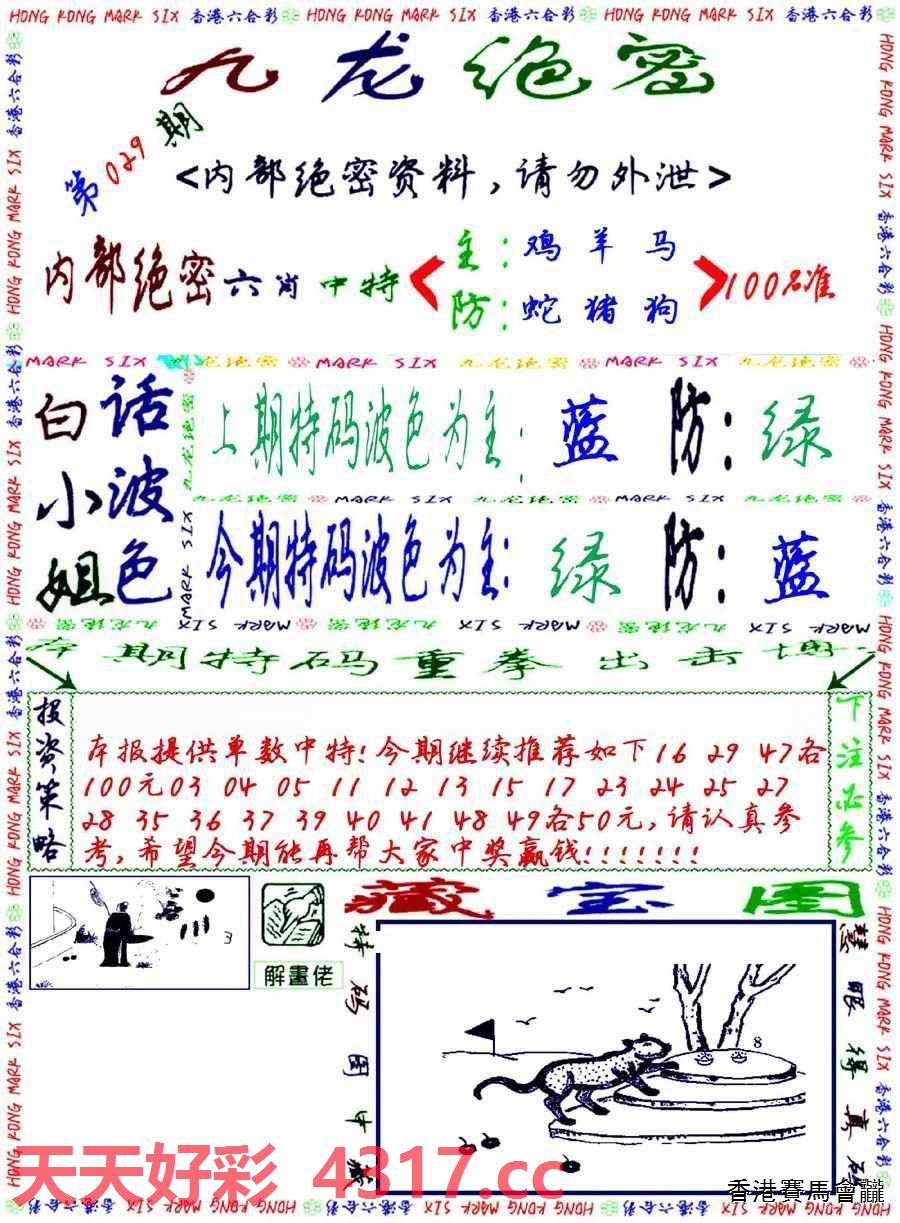 HONG KONG MARK SIX 香港六合彩 HONG KONG MARK SIX 香港六合彩 HONG KONG MARK SIX 香港六合彩
九龙绝密
第029期
<内部绝密资料,请勿外泄>
内部绝密六肖中特
主:鸡羊马
防:蛇猪狗
100%准
MARK SIX 九龙绝密 MARK SIX 九龙绝密 MARK SIX 九龙绝密
白话小波姐色
上期特码波色为主:蓝 防:绿
九龙绝密 MARK SIX 九龙绝密 MARK SIX 九龙绝密
今期特码波色为主:绿 防:蓝
本期特码重拳出击
投资策略
本报提供单数中特!今期继续推荐如下16 29 47各
100元03 04 05 11 12 13 15 17 23 24 25 27
28 35 36 37 39 40 41 48 49各50元,请认真参
考,希望今期能再帮大家中奖赢钱!!!!!!!
下注必参
3
解畫佬
藏宝图
特码图中
慧眼得真
8
天天好彩 4317.cc
香港賽馬會